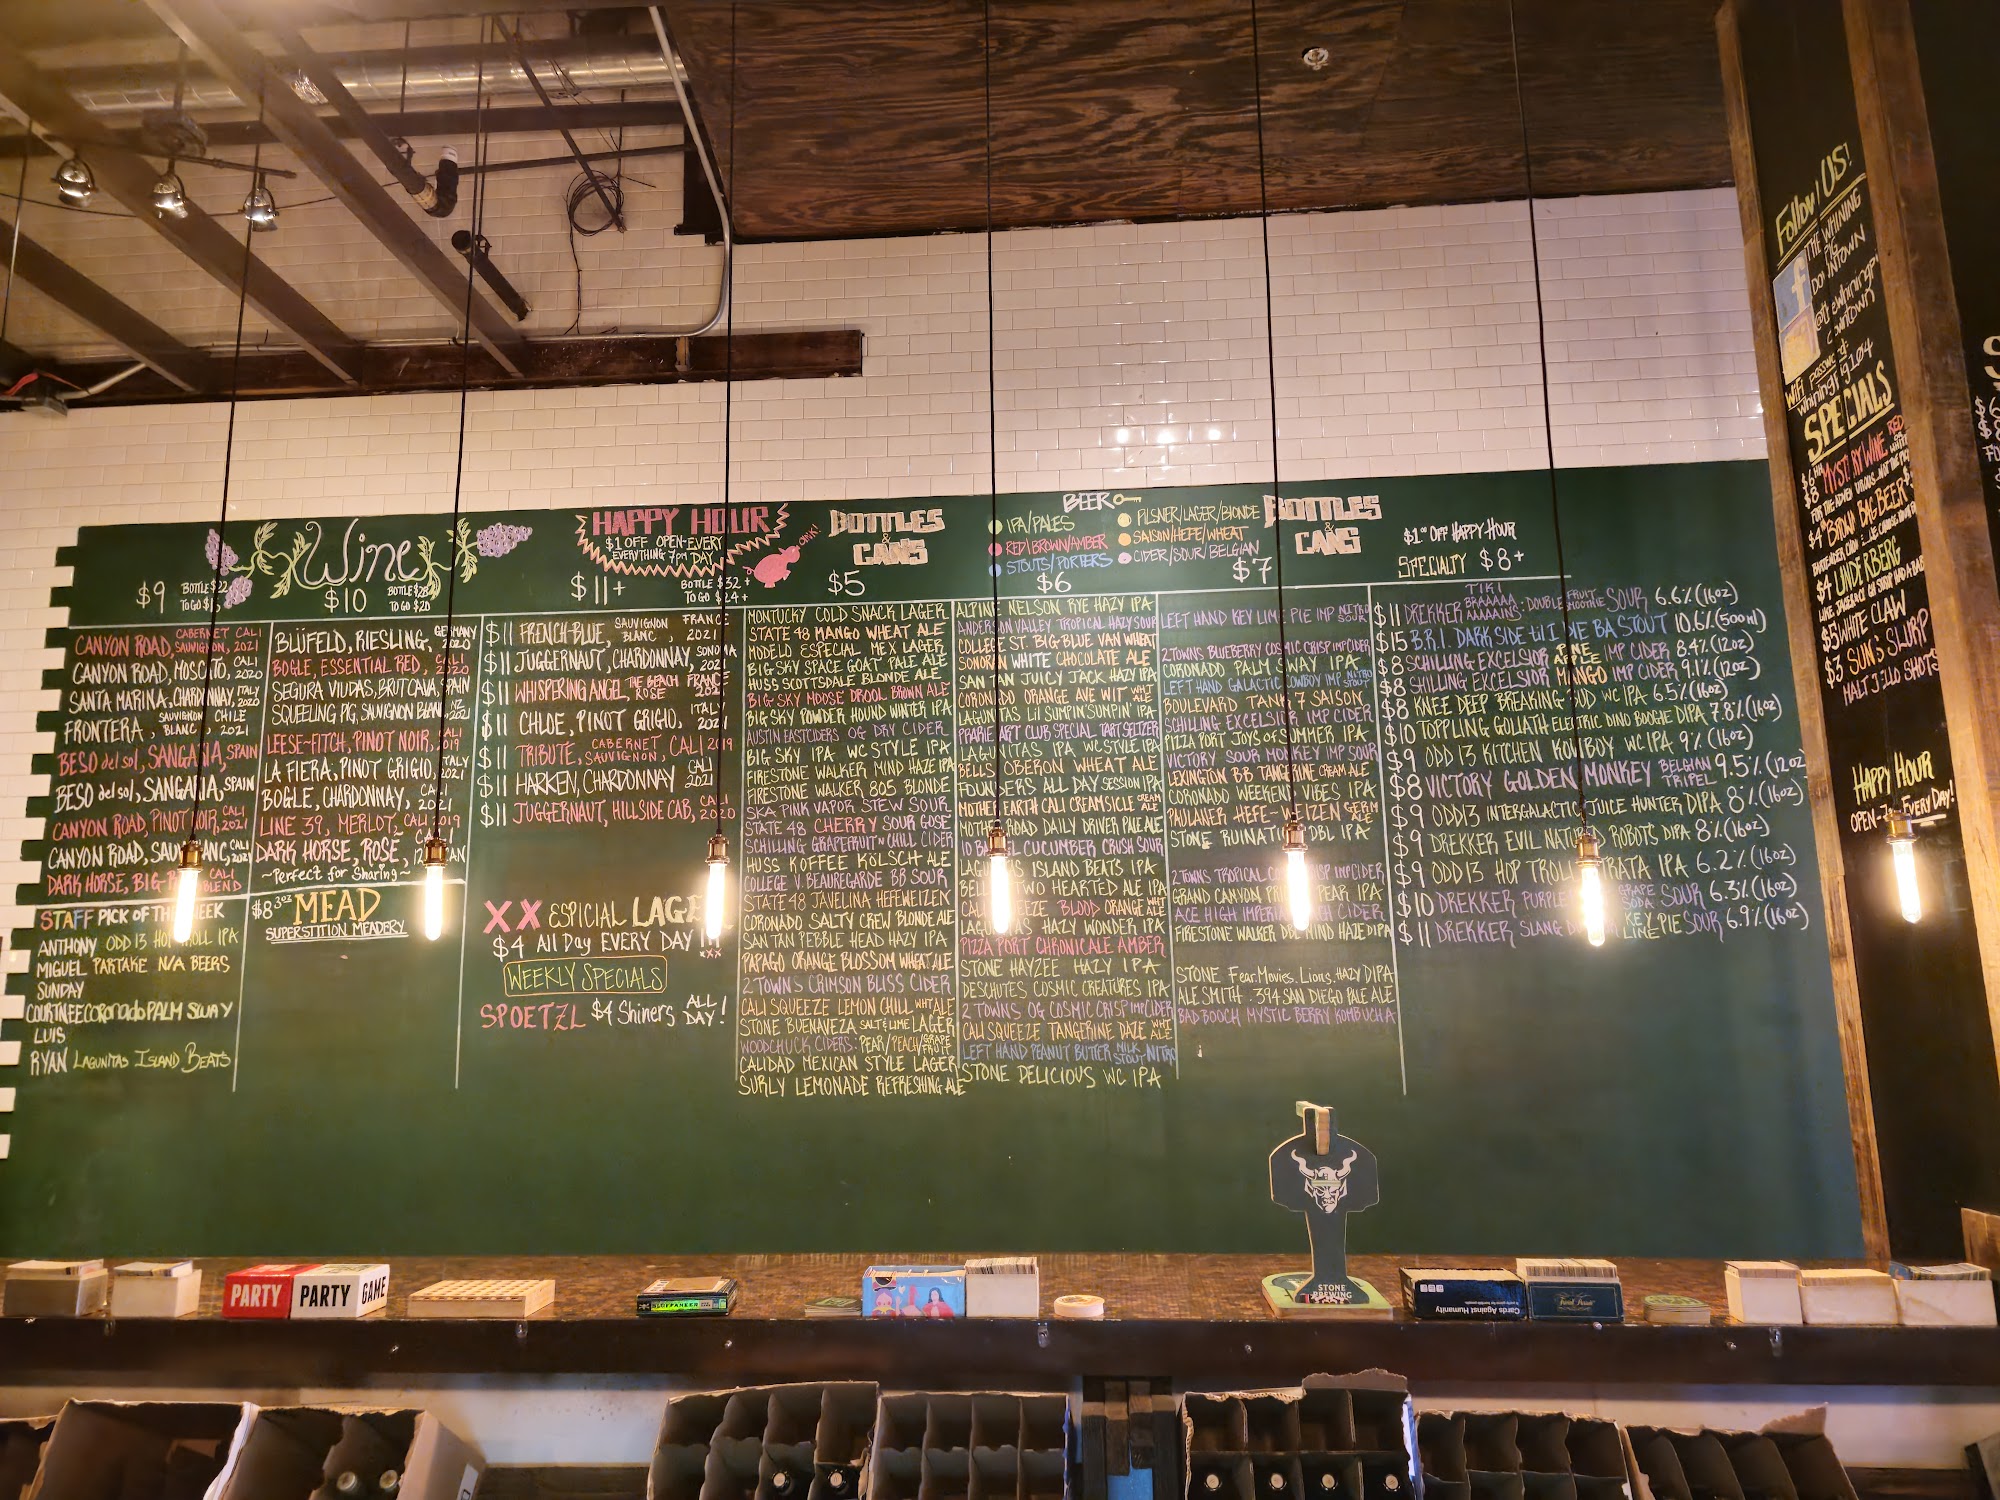 Wine
$9
BOTTLE $22
TO GO
$10
BOTTLE
TO GO $20
CANYON ROAD, CABERNET SAUVIGNON, CALI 2021
CANYON ROAD, MOSCATO, CALI 2020
SANTA MARINA, CHARDONNAY, ITALY 2020
FRONTERA, SAUVIGNON BLANC, CHILE 2021
BESO del SOL, SANGRIA, SPAIN
BESO del SOL, SANGRIA, SPAIN
CANYON ROAD, PINOT NOIR, CALI 2021
CANYON ROAD, CALI
DARK HORSE, CALI BLEND
STAFF PICK OF THE WEEK
ANTHONY ODD 13 HOP TROLL IPA
MIGUEL PARTAKE N/A BEERS
SUNDAY
COURTNEE CORONADO PALM SWAY
LUIS
RYAN LAGUNITAS ISLAND BEATS
BLÜFELD, RIESLING, GERMANY 2020
BOGLE, ESSENTIAL RED, CALI
SEGURA VIUDAS, BRUT CAVA, SPAIN
SQUEELING PIG, SAUVIGNON BLANC, NZ 2021
LEESE-FITCH, PINOT NOIR, CALI 2019
LA FIERA, PINOT GRIGIO, ITALY 2021
BOGLE, CHARDONNAY, CALI 2021
LINE 39, MERLOT, CALI 2019
DARK HORSE, ROSÉ, CAN
~Perfect for Sharing~
$8 3oz MEAD
SUPERSTITION MEADERY
HAPPY HOUR
$1 OFF OPEN-EVERY
EVERYTHING 7PM DAY
OINK!
$11+
BOTTLE $32+
TO GO $24+
$11 FRENCH-BLUE, SAUVIGNON BLANC, FRANCE 2021
$11 JUGGERNAUT, CHARDONNAY, SONOMA 2021
$11 WHISPERING ANGEL, THE BEACH ROSÉ FRANCE
$11 CHLOE, PINOT GRIGIO, ITALY 2021
$11 TRIBUTE, CABERNET SAUVIGNON, CALI 2019
$11 HARKEN, CHARDONNAY CALI 2021
$11 JUGGERNAUT, HILLSIDE CAB, CALI 2020
XX ESPICIAL LAGER
$4 All Day EVERY DAY
WEEKLY SPECIALS
SPOETZL $4 Shiners ALL DAY!
BOTTLES & CANS
$5
MONTUCKY COLD SNACK LAGER
STATE 48 MANGO WHEAT ALE
MODELO ESPECIAL MEX LAGER
BIG SKY SPACE GOAT PALE ALE
HUSS SCOTTSDALE BLONDE ALE
BIG SKY MOOSE DROOL BROWN ALE
BIG SKY POWDER HOUND WINTER IPA
AUSTIN EASTCIDERS OG DRY CIDER
BIG SKY IPA WC STYLE IPA
FIRESTONE WALKER MIND HAZE IPA
FIRESTONE WALKER 805 BLONDE
SKA PINK VAPOR STEW SOUR
STATE 48 CHERRY SOUR GOSE
SCHILLING GRAPEFRUIT N CHILL CIDER
HUSS KOFFEE KÖLSCH ALE
COLLEGE V. BEAUREGARDE BB SOUR
STATE 48 JAVELINA HEFEWEIZEN
CORONADO SALTY CREW BLONDE ALE
SAN TAN PEBBLE HEAD HAZY IPA
PAPAGO ORANGE BLOSSOM WHEAT ALE
2 TOWNS CRIMSON BLISS CIDER
CALI SQUEEZE LEMON CHILL WHT ALE
STONE BUENAVEZA SALT & LIME LAGER
WOODCHUCK CIDERS: PEAR/PEACH/GRAPEFRUIT
CALIDAD MEXICAN STYLE LAGER
SURLY LEMONADE REFRESHING ALE
BEER
IPA/PALES
RED/BROWN/AMBER
STOUTS/PORTERS
PILSNER/LAGER/BLONDE
SAISON/HEFE/WHEAT
CIDER/SOUR/BELGIAN
$6
ALPINE NELSON RYE HAZY IPA
ANDERSON VALLEY TROPICAL HAZY SOUR
COLLEGE ST. BIG BLUE VAN WHEAT
SONORAN WHITE CHOCOLATE ALE
SAN TAN JUICY JACK HAZY IPA
CORONADO ORANGE AVE WIT WHT ALE
LAGUNITAS Lil SUMPIN' SUMPIN' IPA
PRAIRIE ART CLUB SPECIAL TART SELTZER
LAGUNITAS IPA WC STYLE IPA
BELLS OBERON WHEAT ALE
FOUNDERS ALL DAY SESSION IPA
MOTHER EARTH CALI CREAMSICLE CREAM ALE
MOTHER ROAD DAILY DRIVER PALE ALE
10 BARREL CUCUMBER CRUSH SOUR
LAGUNITAS ISLAND BEATS IPA
BELLS TWO HEARTED ALE IPA
CALI SQUEEZE BLOOD ORANGE WHT ALE
LAGUNITAS HAZY WONDER IPA
PIZZA PORT CHRONICALE AMBER
STONE HAYZEE HAZY IPA
DESCHUTES COSMIC CREATURES IPA
2 TOWNS OG COSMIC CRISP IMP CIDER
CALI SQUEEZE TANGERINE DAZE WHT ALE
LEFT HAND PEANUT BUTTER MILK STOUT NITRO
STONE DELICIOUS WC IPA
BOTTLES & CANS
$7
LEFT HAND KEY LIME PIE IMP NITRO SOUR
2 TOWNS BLUEBERRY COSMIC CRISP IMP CIDER
CORONADO PALM SWAY IPA
LEFT HAND GALACTIC COWBOY IMP NITRO STOUT
BOULEVARD TANK 7 SAISON
SCHILLING EXCELSIOR IMP CIDER
PIZZA PORT JOYS OF SUMMER IPA
VICTORY SOUR MONKEY IMP SOUR
LEXINGTON BB TANGERINE CREAM ALE
CORONADO WEEKEND VIBES IPA
PAULANER HEFE-WEIZEN GERM ALE
STONE RUINATION DBL IPA
2 TOWNS TROPICAL COSMIC CRISP IMP CIDER
GRAND CANYON PRICKLY PEAR IPA
ACE HIGH IMPERIAL CIDER
FIRESTONE WALKER DBL MIND HAZE DIPA
STONE Fear.Movies.Lions. HAZY DIPA
ALE SMITH .394 SAN DIEGO PALE ALE
BAD BOOCH MYSTIC BERRY KOMBUCHA
$1.00 OFF HAPPY HOUR
SPECIALTY $8+
$11 DREKKER TIKI BRAAAAAAAAINS: DOUBLE FRUIT SMOOTHIE SOUR 6.6% (16oz)
$15 B.R.I. DARK SIDE BA STOUT 10.6% (500ml)
$8 SCHILLING EXCELSIOR PINEAPPLE IMP CIDER 8.4% (12oz)
$8 SHILLING EXCELSIOR MANGO IMP CIDER 9.1% (12oz)
$8 KNEE DEEP BREAKING BUD WC IPA 6.5% (16oz)
$10 TOPPLING GOLIATH ELECTRIC DINO BOOGIE DIPA 7.8% (16oz)
$9 ODD 13 KITCHEN KOWBOY WC IPA 9% (16oz)
$8 VICTORY GOLDEN MONKEY BELGIAN TRIPEL 9.5% (12oz
$9 ODD13 INTERGALACTIC JUICE HUNTER DIPA 8% (16oz)
$9 DREKKER EVIL NATURED ROBOTS DIPA 8% (16oz)
$9 ODD 13 HOP TROLL IPA 6.2% (16oz)
$10 DREKKER PURPLE GRAPE SODA SOUR 6.3% (16oz)
$11 DREKKER SLANG KEY LIME PIE SOUR 6.9% (16oz)
Follow US!
THE WHINING PIG DOWNTOWN
WiFi password:
whiningpig104
SPECIALS
MYSTERY WINE RED
$4 BROWN BAG BEER
$4 UNDERBERG
$5 WHITE CLAW
$3 SUNS SLURP
MALT JELLO SHOTS
HAPPY HOUR
OPEN-7PM EVERY DAY!
PARTY
PARTY GAME
STONE BREWING
Cards Against Humanity